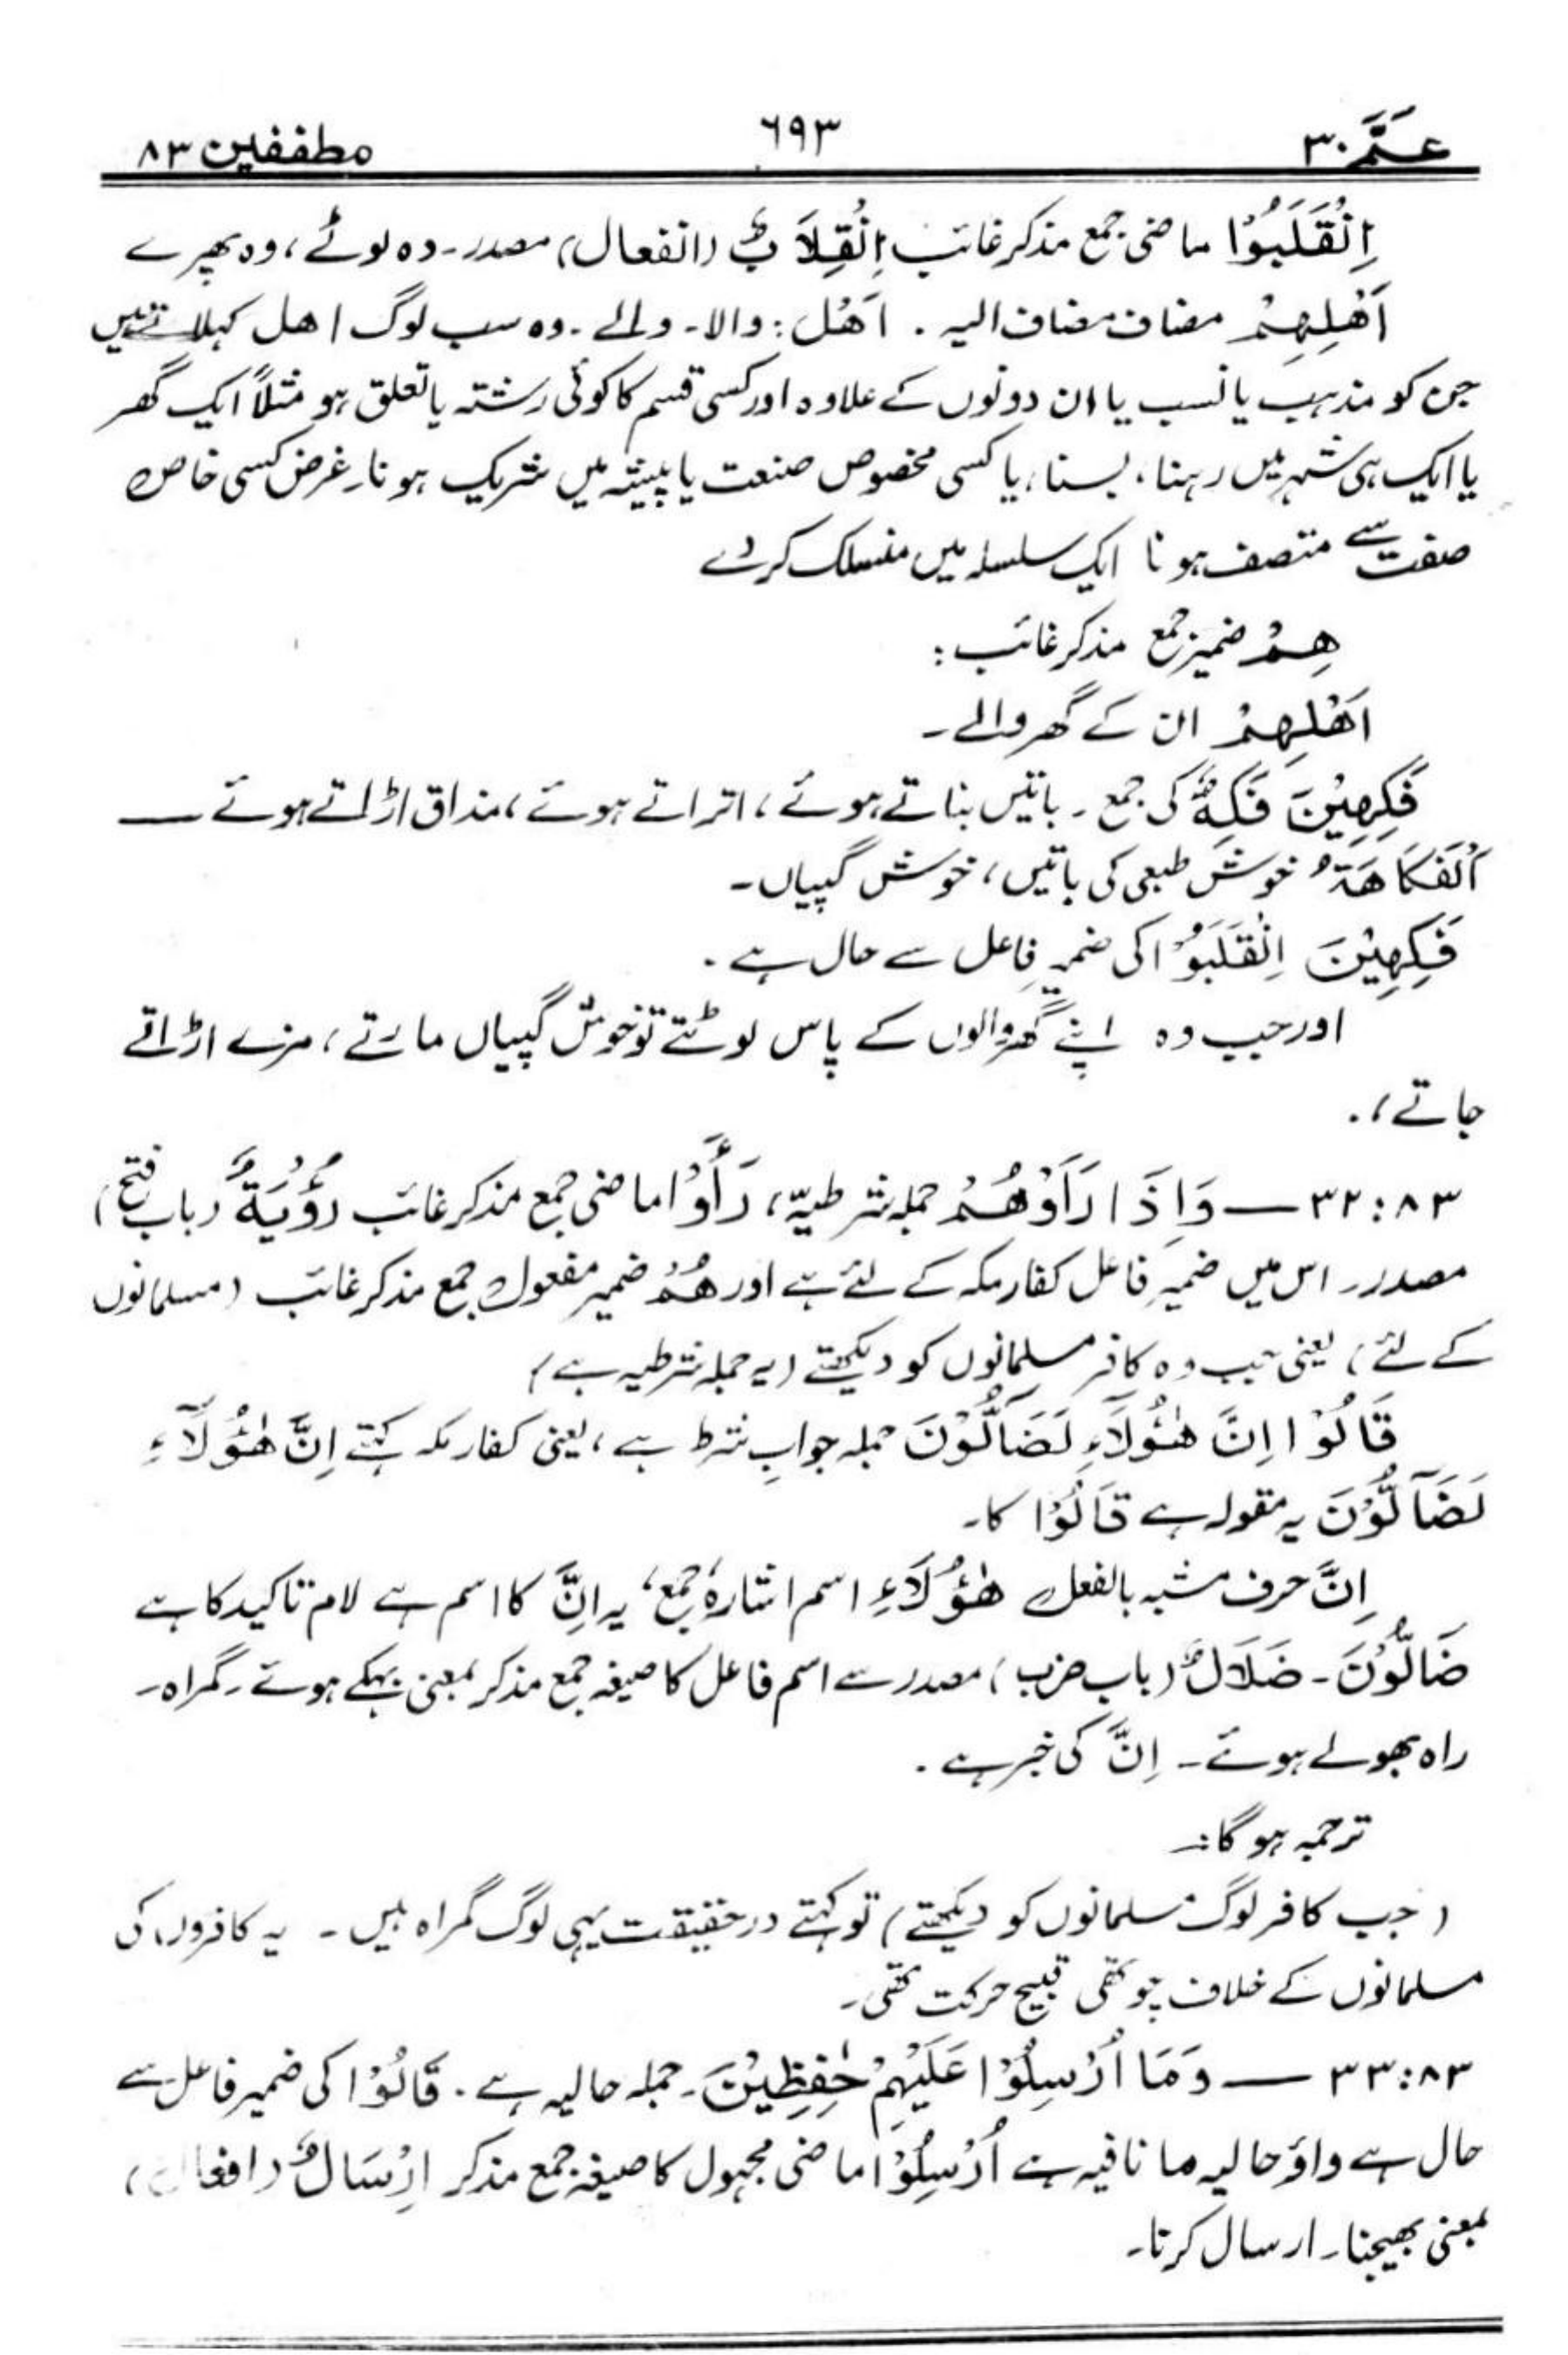 عَمَّ ۳۰ ۶۹۳ مطففین ۸۳
اِنْقَلَبُوْا ماضی جمع مذکر غائب اِنْقِلَابٌ (انفعال) مصدر۔ وہ لوٹے، وہ پھرے
اَھْلِھِمْ مضاف مضاف الیہ ۔ اَھْلَ: والا۔ والے ۔ وہ سب لوگ اھل کہلاتے ہیں
جن کو مذہب یا نسب یا ان دونوں کے علاوہ اور کسی قسم کا کوئی رشتہ یا تعلق ہو مثلاً ایک گھر
یا ایک ہی شہر میں رہنا، بسنا، یا کسی مخصوص صنعت یا پیشہ میں شریک ہونا۔ غرض کسی خاص
صفت سے متصف ہونا ایک سلسلہ میں منسلک کر دے
ھِمْ ضمیر جمع مذکر غائب :
اَھْلِھِمْ ان کے گھر والے ۔
فَکِھِیْنَ فَکِہٌ کی جمع ۔ باتیں بناتے ہوئے، اتراتے ہوئے، مذاق اڑاتے ہوئے ــــ
اَلْفَکَاھَۃُ خوش طبعی کی باتیں، خوش گپیاں۔
فَکِھِیْنَ اِنْقَلَبُوْا کی ضمیرِ فاعل سے حال ہے ۔
اور جب وہ اپنے گھر والوں کے پاس لوٹتے تو خوش گپیاں مارتے، مزے اڑاتے
جاتے،۔
۳۲:۸۳ ــــ وَاِذَا رَاَوْھُمْ جملہ شرطیہ، رَأَوْا ماضی جمع مذکر غائب رُؤْیَۃٌ (باب فتح)
مصدر۔ اس میں ضمیرِ فاعل کفار مکہ کے لئے ہے اور ھُمْ ضمیر مفعول جمع مذکر غائب (مسلمانوں
کے لئے) یعنی جب وہ کافر مسلمانوں کو دیکھتے (یہ جملہ شرطیہ ہے)
قَالُوْا اِنَّ ھٰٓؤُلَآءِ لَضَآلُّوْنَ جملہ جوابِ شرط ہے، یعنی کفار مکہ کہتے اِنَّ ھٰٓؤُلَآءِ
لَضَآلُّوْنَ یہ مقولہ ہے قَالُوْا کا۔
اِنَّ حرف مشبہ بالفعل ھٰٓؤُلَاءِ اسم اشارہ جمع، یہ اِنَّ کا اسم ہے لام تاکید کا ہے
ضَالُّوْنَ۔ ضَلَالٌ (باب ضرب) مصدر سے اسم فاعل کا صیغہ جمع مذکر بمعنی بہکے ہوئے ۔ گمراہ ۔
راہ بھولے ہوئے ۔ اِنَّ کی خبر ہے ۔
ترجمہ ہوگا :۔
(جب کافر لوگ مسلمانوں کو دیکھتے) تو کہتے درحقیقت یہی لوگ گمراہ ہیں ۔ یہ کافروں کی
مسلمانوں کے خلاف چوتھی قبیح حرکت تھی۔
۳۳:۸۳ ــــ وَمَا اُرْسِلُوْا عَلَیْھِمْ حٰفِظِیْنَ۔ جملہ حالیہ ہے ۔ قَالُوْا کی ضمیر فاعل سے
حال ہے واؤ حالیہ ما نافیہ ہے اُرْسِلُوْا ماضی مجہول کا صیغہ جمع مذکر اِرْسَالٌ (افعال)
بمعنی بھیجنا۔ ارسال کرنا۔